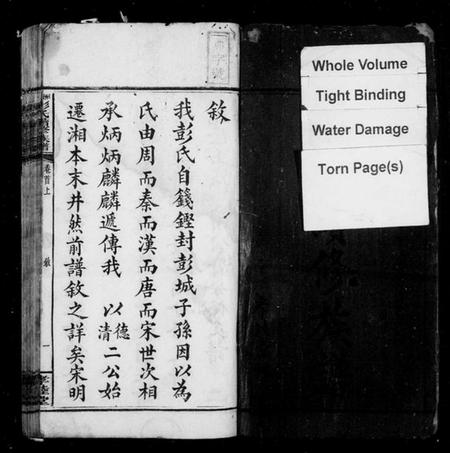 敘
我彭氏自籛鏗封彭城子孫因以為
氏由周而秦而漢而唐而宋世次相
承炳炳麟麟遞傳我 以德清二公始
遷湘本末井然前譜敘之詳矣宋明
卷首上
敘
一
Whole Volume
Tight Binding
Water Damage
Torn Page(s)